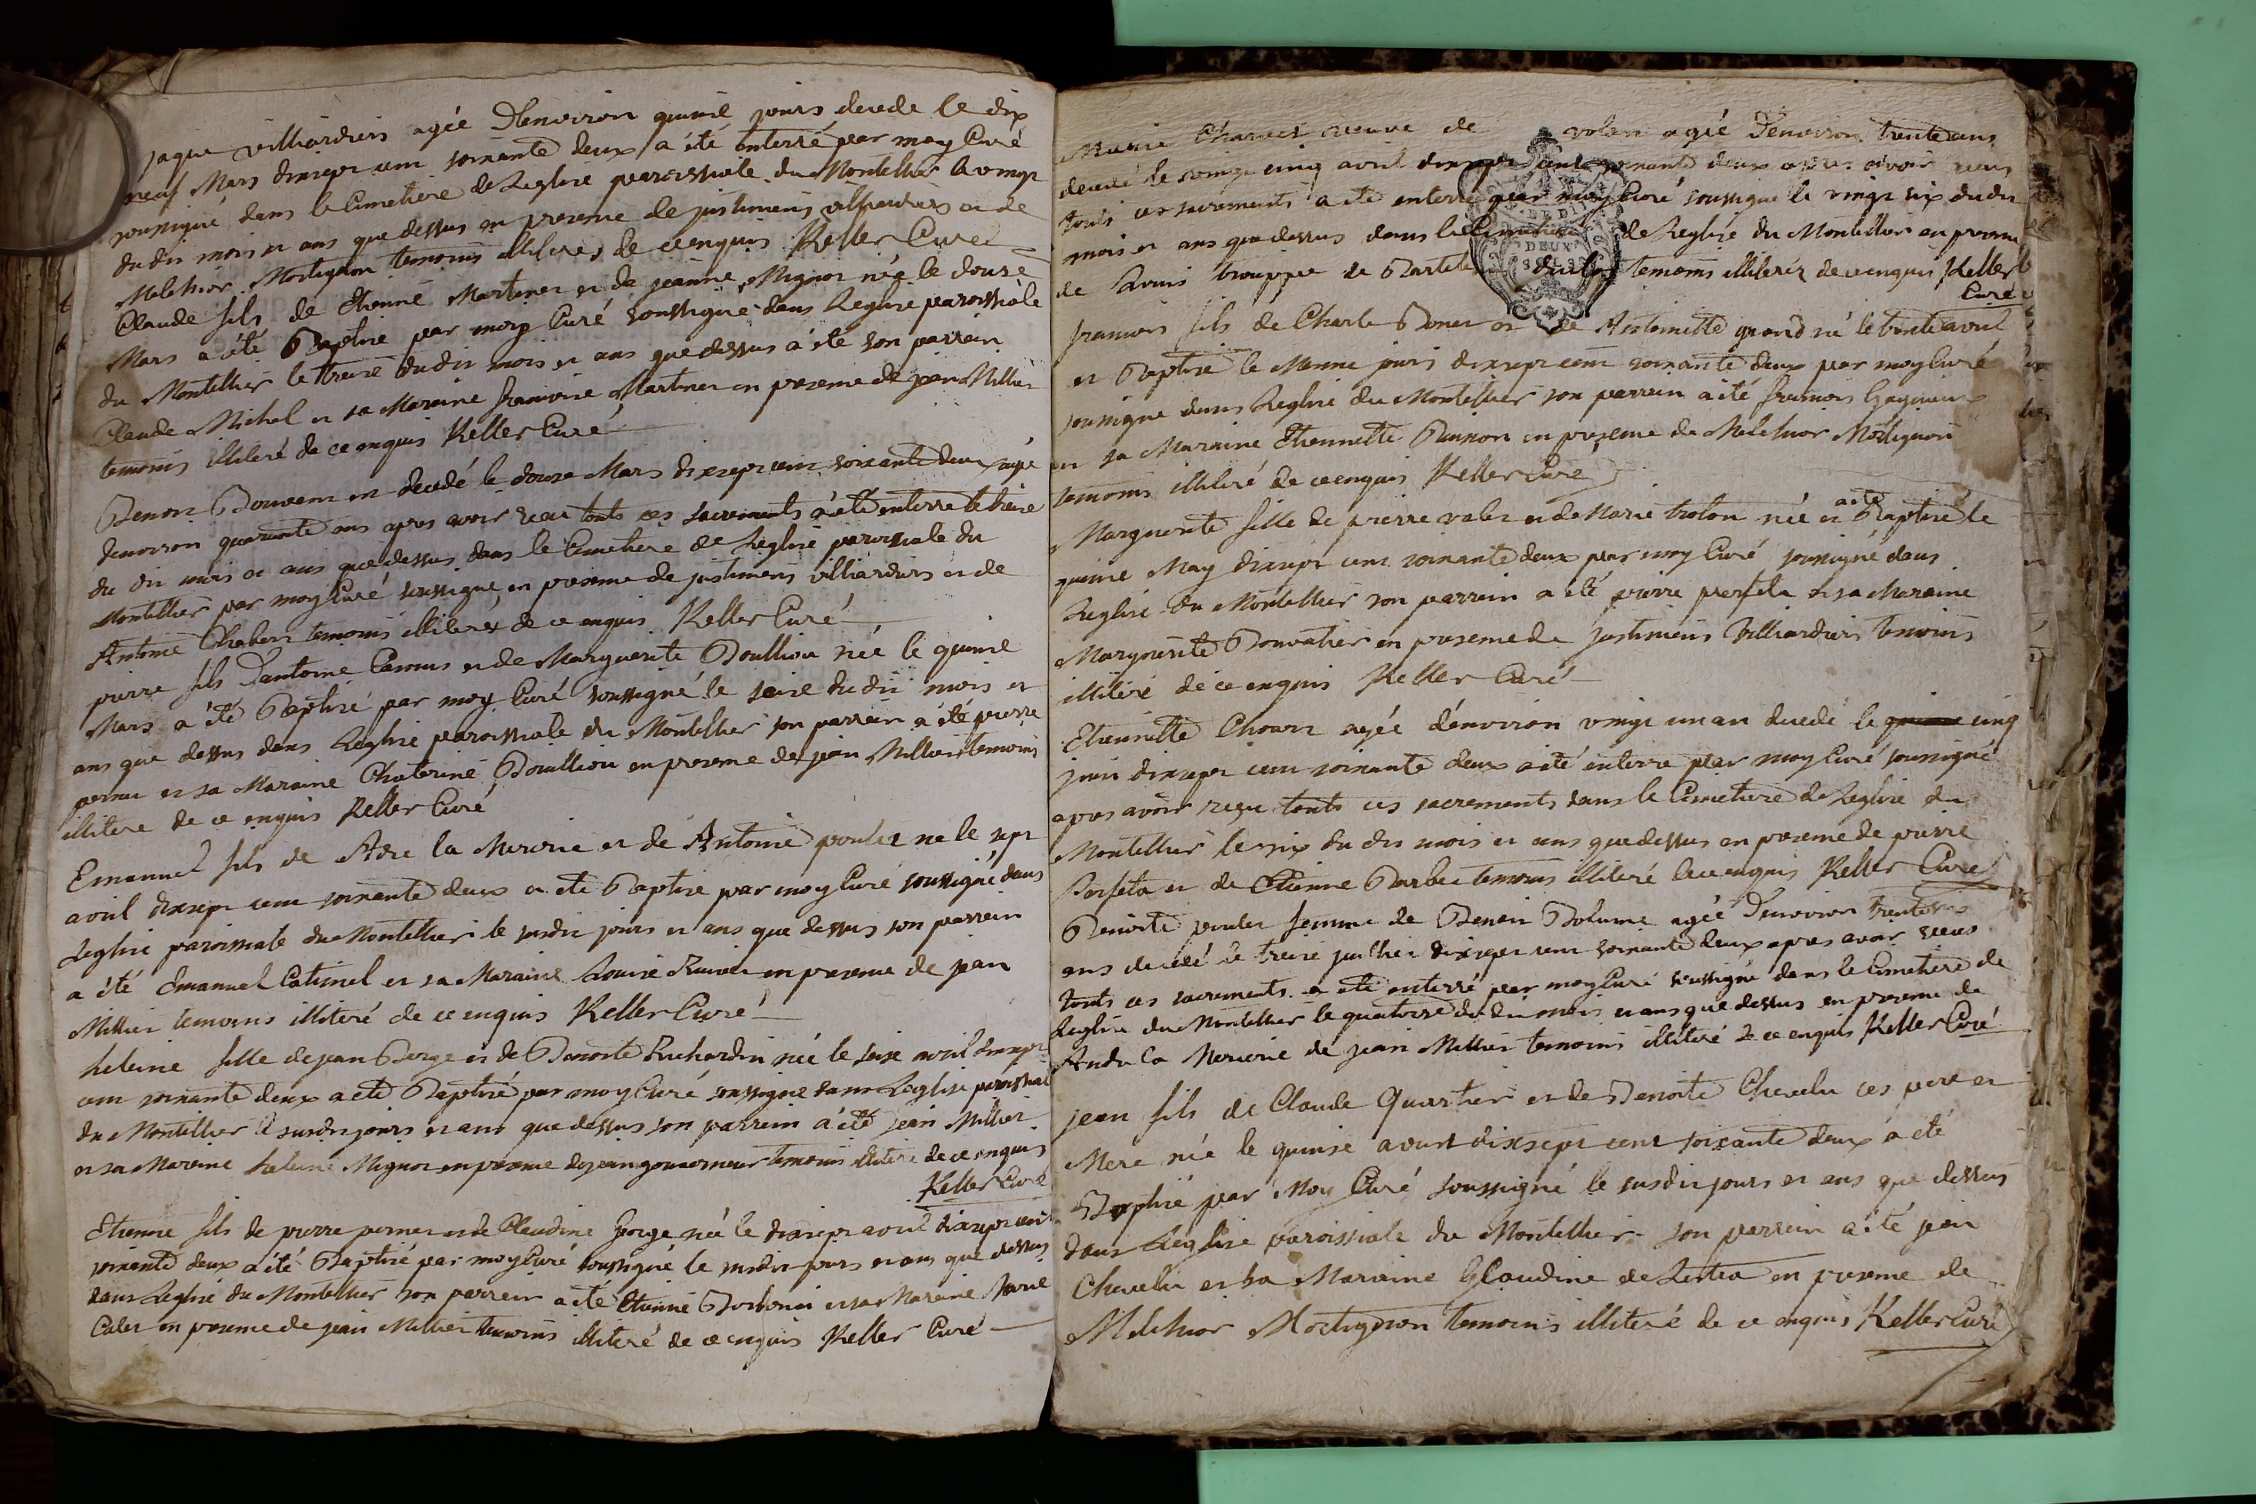 jaque villiardieis agée d'environ quinse jours decede le dix
neuf Mars dixsept cent soixante deux a été enterré par moy Curé
soussigné dans le Cimetiere de Leglise paroissiale du Montellier le vingt
du dit mois et ans que dessus en presence de justinien villiardieis et de
Melchior Mortignon temoins illiteres de ce enquis Keller Curé
Claude fils de Etienne Martinet et de jeanne Mignot née le douse
Mars a été Baptisé par moy Curé soussigné dans Leglise paroissiale
du Montellier le treise du dit mois et ans que dessus a été son parrain
Claude Michel et sa Maraine francoise Martinet en presence de jean Millier
temoins illiteré de ce enquis Keller Curé
Benoit Bouvent et decedé le douse Mars dixsept cent soixante deux agée
denviron quarante ans apres avoir recu touts ces sacrements a été enterré le treise
du dit mois et ans que dessus dans le Cimetiere de Leglise paroissiale du
Montellier par moy Curé soussigné en presence de justinien villiardieis et de
Antoine Chabert temoins illiterés de ce enquis Keller Curé
pierre fils d'antoine Camus et de Marguerite Boullion née le quinse
Mars a été Baptisé par moy Curé soussigné le seise du dit mois et
ans que dessus dans Leglise paroissiale du Montellier son parrain a été pierre
pernet et sa Maraine Chaterine Boullion en presence de jean Millier temoins
illitere de ce enquis Keller Curé
Emanuel fils de Adre la Mererie et de Antoine poulet ne le sept
avril dixsept cent soixante deux a été Baptisé par moy Curé soussigné dans
Leglise paroissiale du Montellier le susdit jours et ans que dessus son parrain
a été Emanuel Catimel et sa Maraine Louise en presence de jean
Millier temoins illiteré de ce enquis Keller Curé
heleine fille de jean Berge et de Benoite Richardin née le seise avril dixsept
cent soixante deux a été Baptisé par moy Curé soussigné dans Leglise paroissial
du Montellier le susdit jours et ans que dessus son parrain a été jean Millier
et sa Maraine heleine Mignot en presence de jean gouverneur temoins illiteré de ce enquis
Keller Curé
Etienne fils de pierre pernet et de Claudine Jorge née le dixsept avril dixsept cent
soixante deux a été Baptisé par moy Curé soussigné le susdit jours et ans que dessus
dans Leglise du Montellier son parrain a été Etienne et sa Maraine Marie
Calet en presence de jean Millier temoins illiteré de ce enquis Keller Curé
Marie veuve de volan agée d'environ trente ans
decedé le vingt cinq avril dixsept cent soixante deux apres avoir receu
touts ces sacrements a été enterré par moy Curé soussigné le vingt six du dit
mois et ans que dessus dans le Cimetiere de Leglise du Montellier en presence
de Louis trouppée de temoins illiteréz de ce enquis Keller
Curé
francois fils de Charle Bonet et de Antoinette grand né le trente avril
et Baptisé le Meme jours dixsept cent soixante deux par moy Curé
soussigné dans Leglise du Montellier son parrain a été francois
et sa Maraine Etiennette en presence de Melchior Mortignon
temoins illiteré de ce enquis Keller Curé
Marguerite fille de pierre valet et de Marie trolon née et a été Baptisé le
quinse May dixsept cent soixante deux par moy Curé soussigné dans
Leglise du Montellier son parrain a été pierre perfeta et sa Maraine
Marguerite Bonvatier en presence de justinien Villiardieis temoins
illiteré de ce enquis Keller Curé
Etiennette agée d'environ vingt un an decedé le cinq
juin dixsept cent soixante deux a été enterré par moy Curé soussigné
apres avoir reçu touts ces sacrements dans le Cimetiere de Leglise du
Montellier le six du dit mois et ans que dessus en presence de pierre
Parfeta et de Etienne Barbet temoins illiteré de ce enquis Keller Curé
Benoite poulet femme de Benoit agée d'environ trente
ans decedé le treise juillet dixsept cent soixante deux apres avoir receu
touts ces sacrements a été enterré par moy Curé soussigné dans le Cimetiere de
Leglise du Montellier le quatorse du dit mois et ans que dessus en presence de
Andre la Mererie de jean Millier temoins illiteré de ce enquis Keller Curé
jean fils de Claude Quartier et de Benoite Chevelu ces pere et
Mere née le quinse aoust dixsept cent soixante deux a été
Baptisé par Moy Curé soussigné le susdit jours et ans que dessus
dans Leglise paroissiale du Montellier son parrain a été jean
Chevelu et sa Maraine Claudine de Lestra en presence de
Melchior Mortignon temoins illiteré de ce enquis Keller Curé